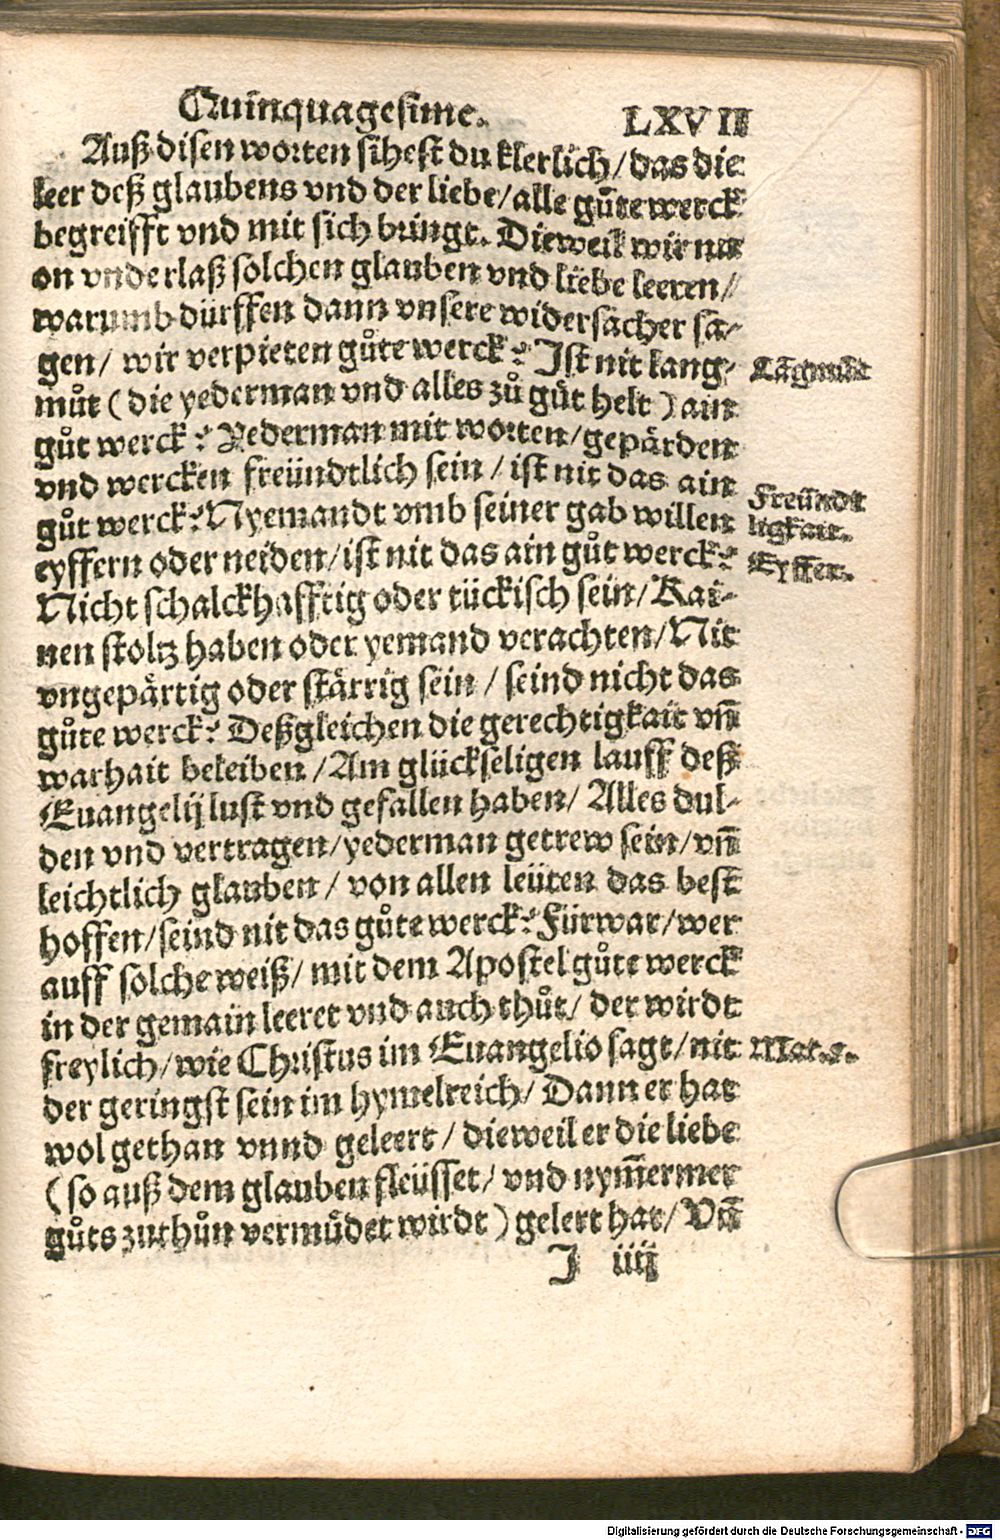 Quinquagesime. LXVII
Auß disen worten sihest du klerlich/ das die
leer deß glaubens vnd der liebe/ alle gůte werck
begreifft vnd mit sich bringt. Dieweil wir nu
on vnderlaß solchen glauben vnd liebe leeren/
warumb dürffen dann vnsere widersacher sa-
gen/ wir verpieten gůte werck? Ist nit lang-
Lāgmůt
můt (die yederman vnd alles zů gůt helt) ain
gůt werck? Yederman mit worten/ gepärden
vnd wercken freündtlich sein/ ist nit das ain
Freündt
gůt werck? Nyemandt vmb seiner gab willen
ligkait.
eyffern oder neiden/ ist nit das ain gůt werck?
Eyffer.
Nicht schalckhafftig oder tückisch sein/ Kai-
nen stoltz haben oder yemand verachten/ Nit
vngepärtig oder stärrig sein/ seind nicht das
gůte werck? Deßgleichen die gerechtigkait vñ
warhait beleiben/ Am glückseligen lauff deß
Euangelij lust vnd gefallen haben/ Alles dul-
den vnd vertragen/ yederman getrew sein/ vñ
leichtlich glauben/ von allen leüten das best
hoffen/ seind nit das gůte werck? Fürwar/ wer
auff solche weiß/ mit dem Apostel gůte werck
in der gemain leeret vnd auch thůt/ der wirdt
freylich/ wie Christus im Euangelio sagt/ nit
Mat. 5.
der geringst sein im hymelreich/ Dann er hat
wol gethan vnnd geleert/ dieweil er die liebe
(so auß dem glauben fleüsset/ vnd nym̄ermer
gůts zuthůn vermůdet wirdt) gelert hat/ Vñ
J iiij
Digitalisierung gefördert durch die Deutsche Forschungsgemeinschaft - DFG